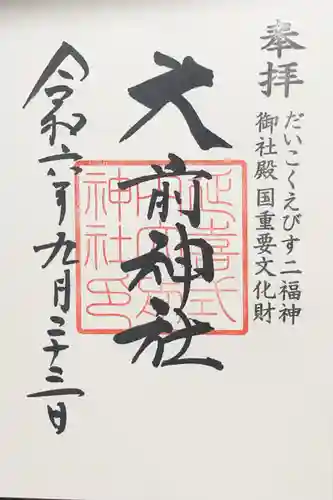 奉拝
だいこくえびす二福神
御社殿国重要文化財
大前神社
延喜式内
神社印
令和六年九月二十三日